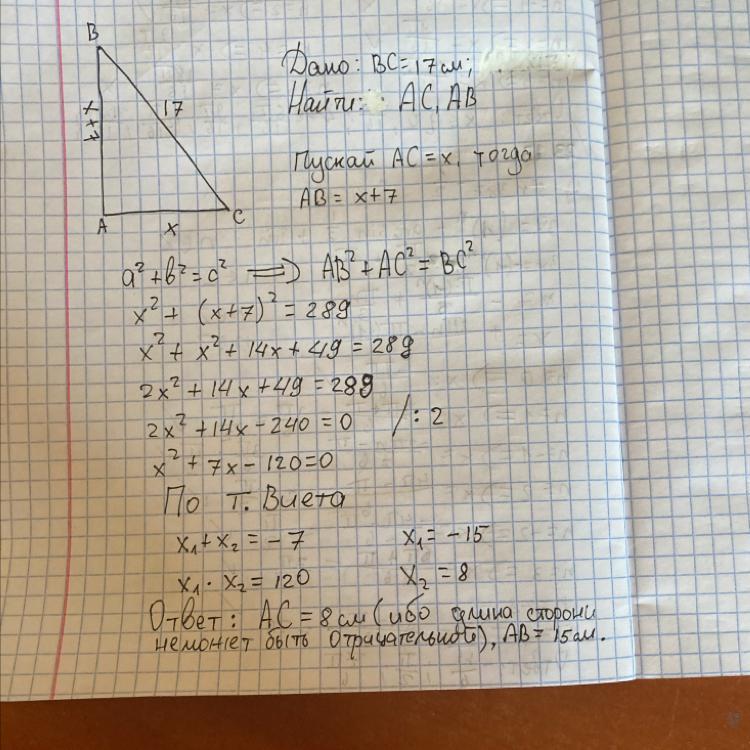 B
Дано: BC = 17 см;
Найти: AC, AB
x+7
17
Пускай AC = x, тогда
AB = x+7
A
x
C
a² + b² = c² ⟹ AB² + AC² = BC²
x² + (x+7)² = 289
x² + x² + 14x + 49 = 289
2x² + 14x + 49 = 289
2x² + 14x - 240 = 0 /: 2
x² + 7x - 120 = 0
По т. Виета
x₁ + x₂ = -7 x₁ = -15
x₁ · x₂ = 120 x₂ = 8
Ответ: AC = 8 см (ибо длина сторони
неможет быть отрицательной), AB = 15 см.